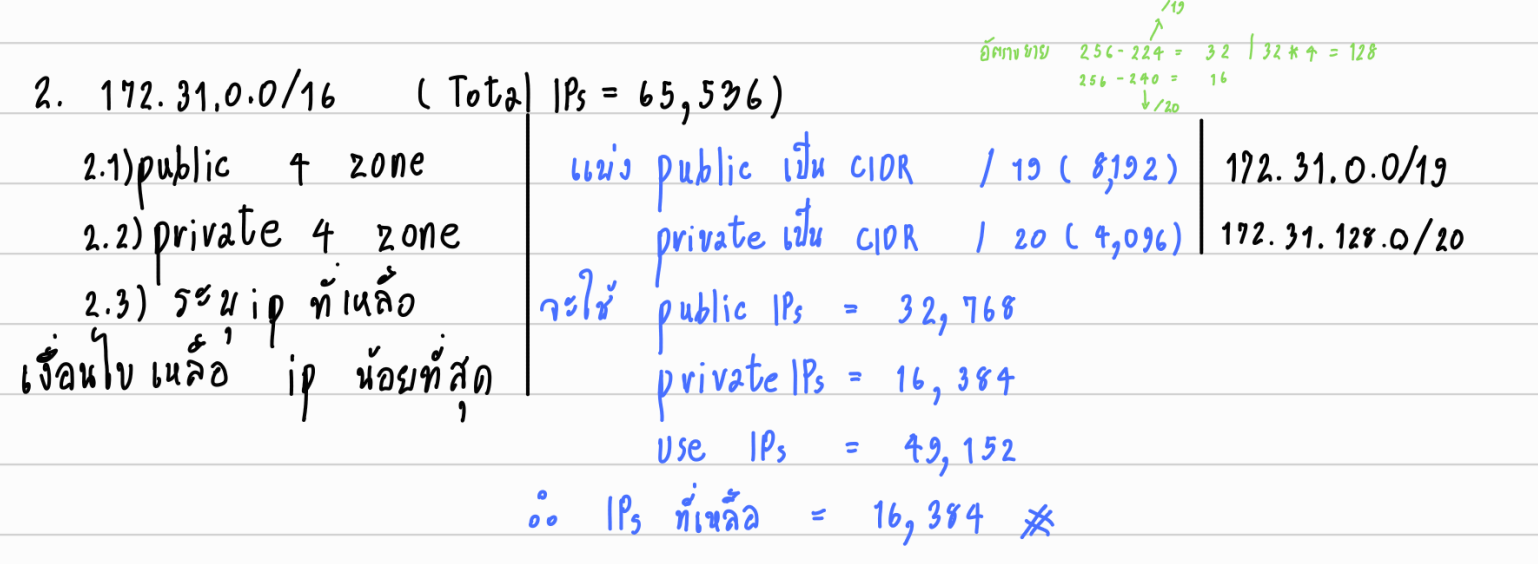 /19
อัตราขยาย 256-224 = 32 | 32 * 4 = 128
256 - 240 = 16
/20
2. 172.31.0.0/16 ( Total IPs = 65,536)
2.1) public 4 zone
2.2) private 4 zone
2.3) ระบุ ip ที่เหลือ
เงื่อนไข เหลือ ip น้อยที่สุด
แบ่ง public เป็น CIDR / 19 ( 8,192)
private เป็น CIDR / 20 ( 4,096)
จะใช้ public IPs = 32,768
private IPs = 16,384
use IPs = 49,152
∴ IPs ที่เหลือ = 16,384 #
172.31.0.0/19
172.31.128.0/20